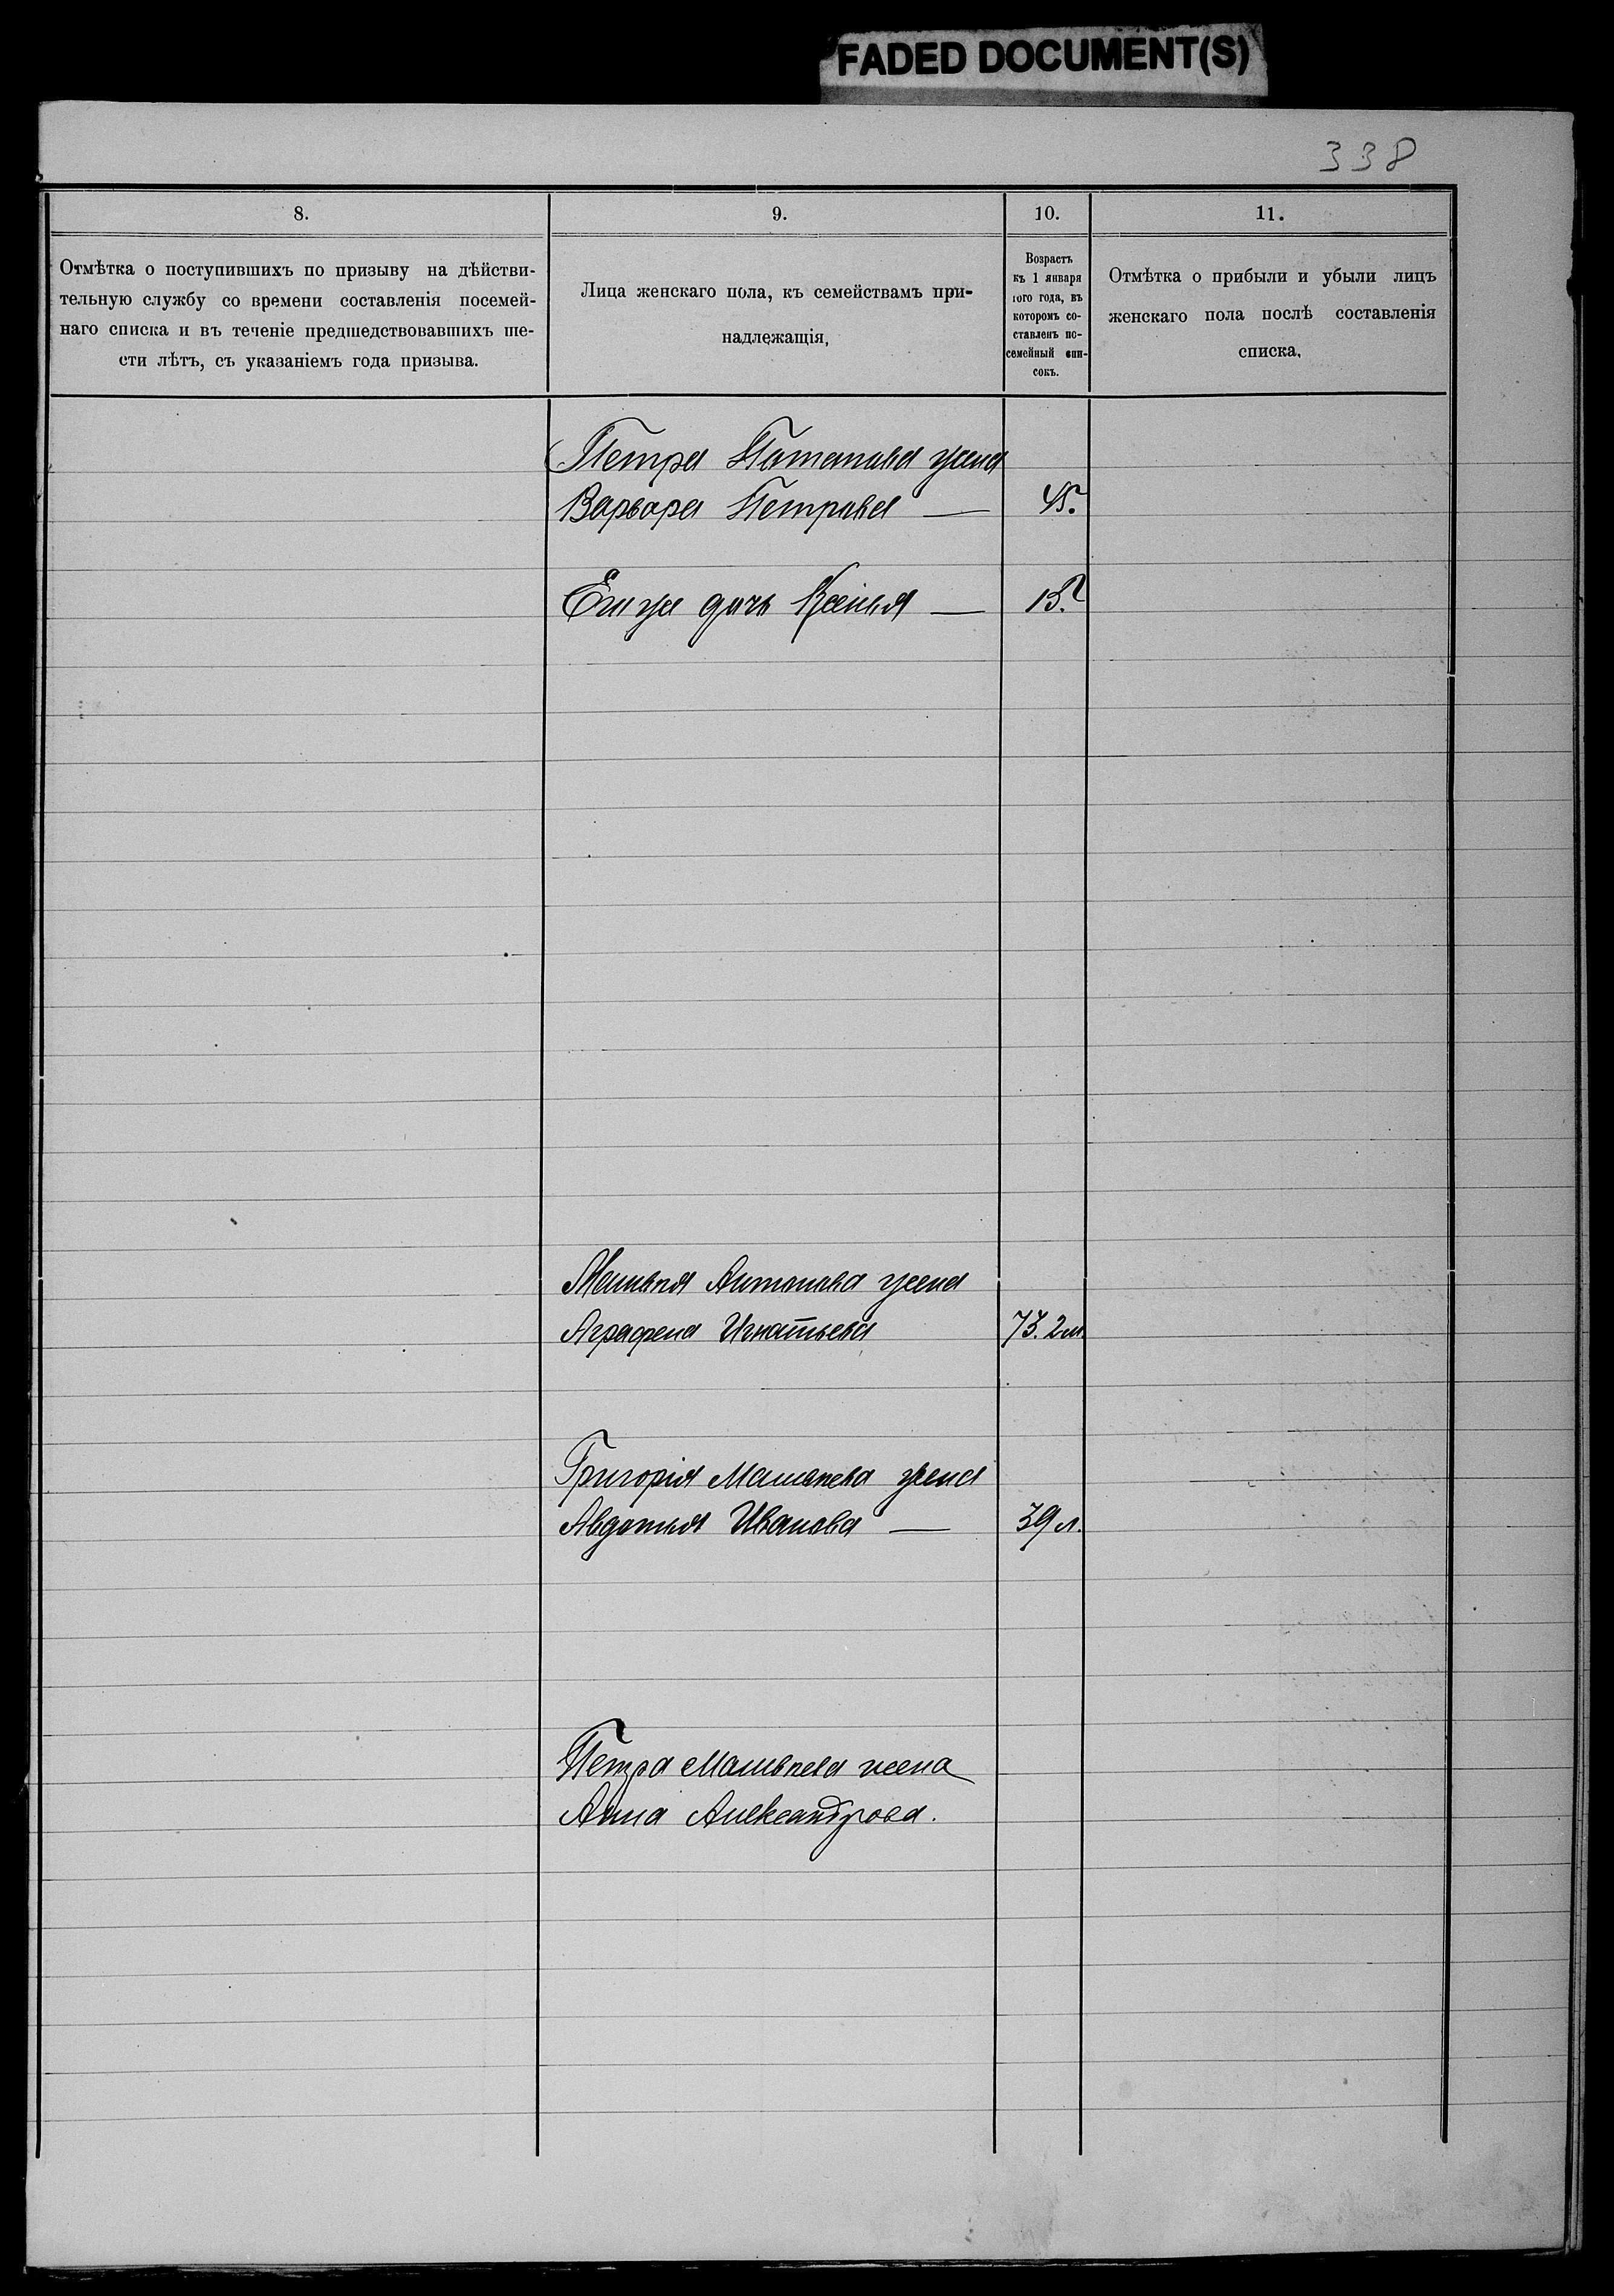 FADED DOCUMENT(S)
338
8.
9.
10.
11.
Отмѣтка о поступившихъ по призыву на дѣйстви-
тельную службу со времени составленія посемей-
наго списка и въ теченіе предшедствовавшихъ ше-
сти лѣтъ, съ указаніемъ года призыва.
Лица женскаго пола, къ семействамъ при-
надлежащія,
Возрастъ
къ 1 января
того года, въ
которомъ со-
ставленъ по-
семейный спи-
сокъ.
Отмѣтка о прибыли и убыли лицъ
женскаго пола послѣ составленія
списка,
Петра Потапова жена
Варвара Петрова — 45.
Его же дочь Ксенья —
Антонова жена
Аграфена Игнатьева 73. 2м
Григорія жена
Авдотья Иванова — 39 л.
Петра жена
Анна Александрова.